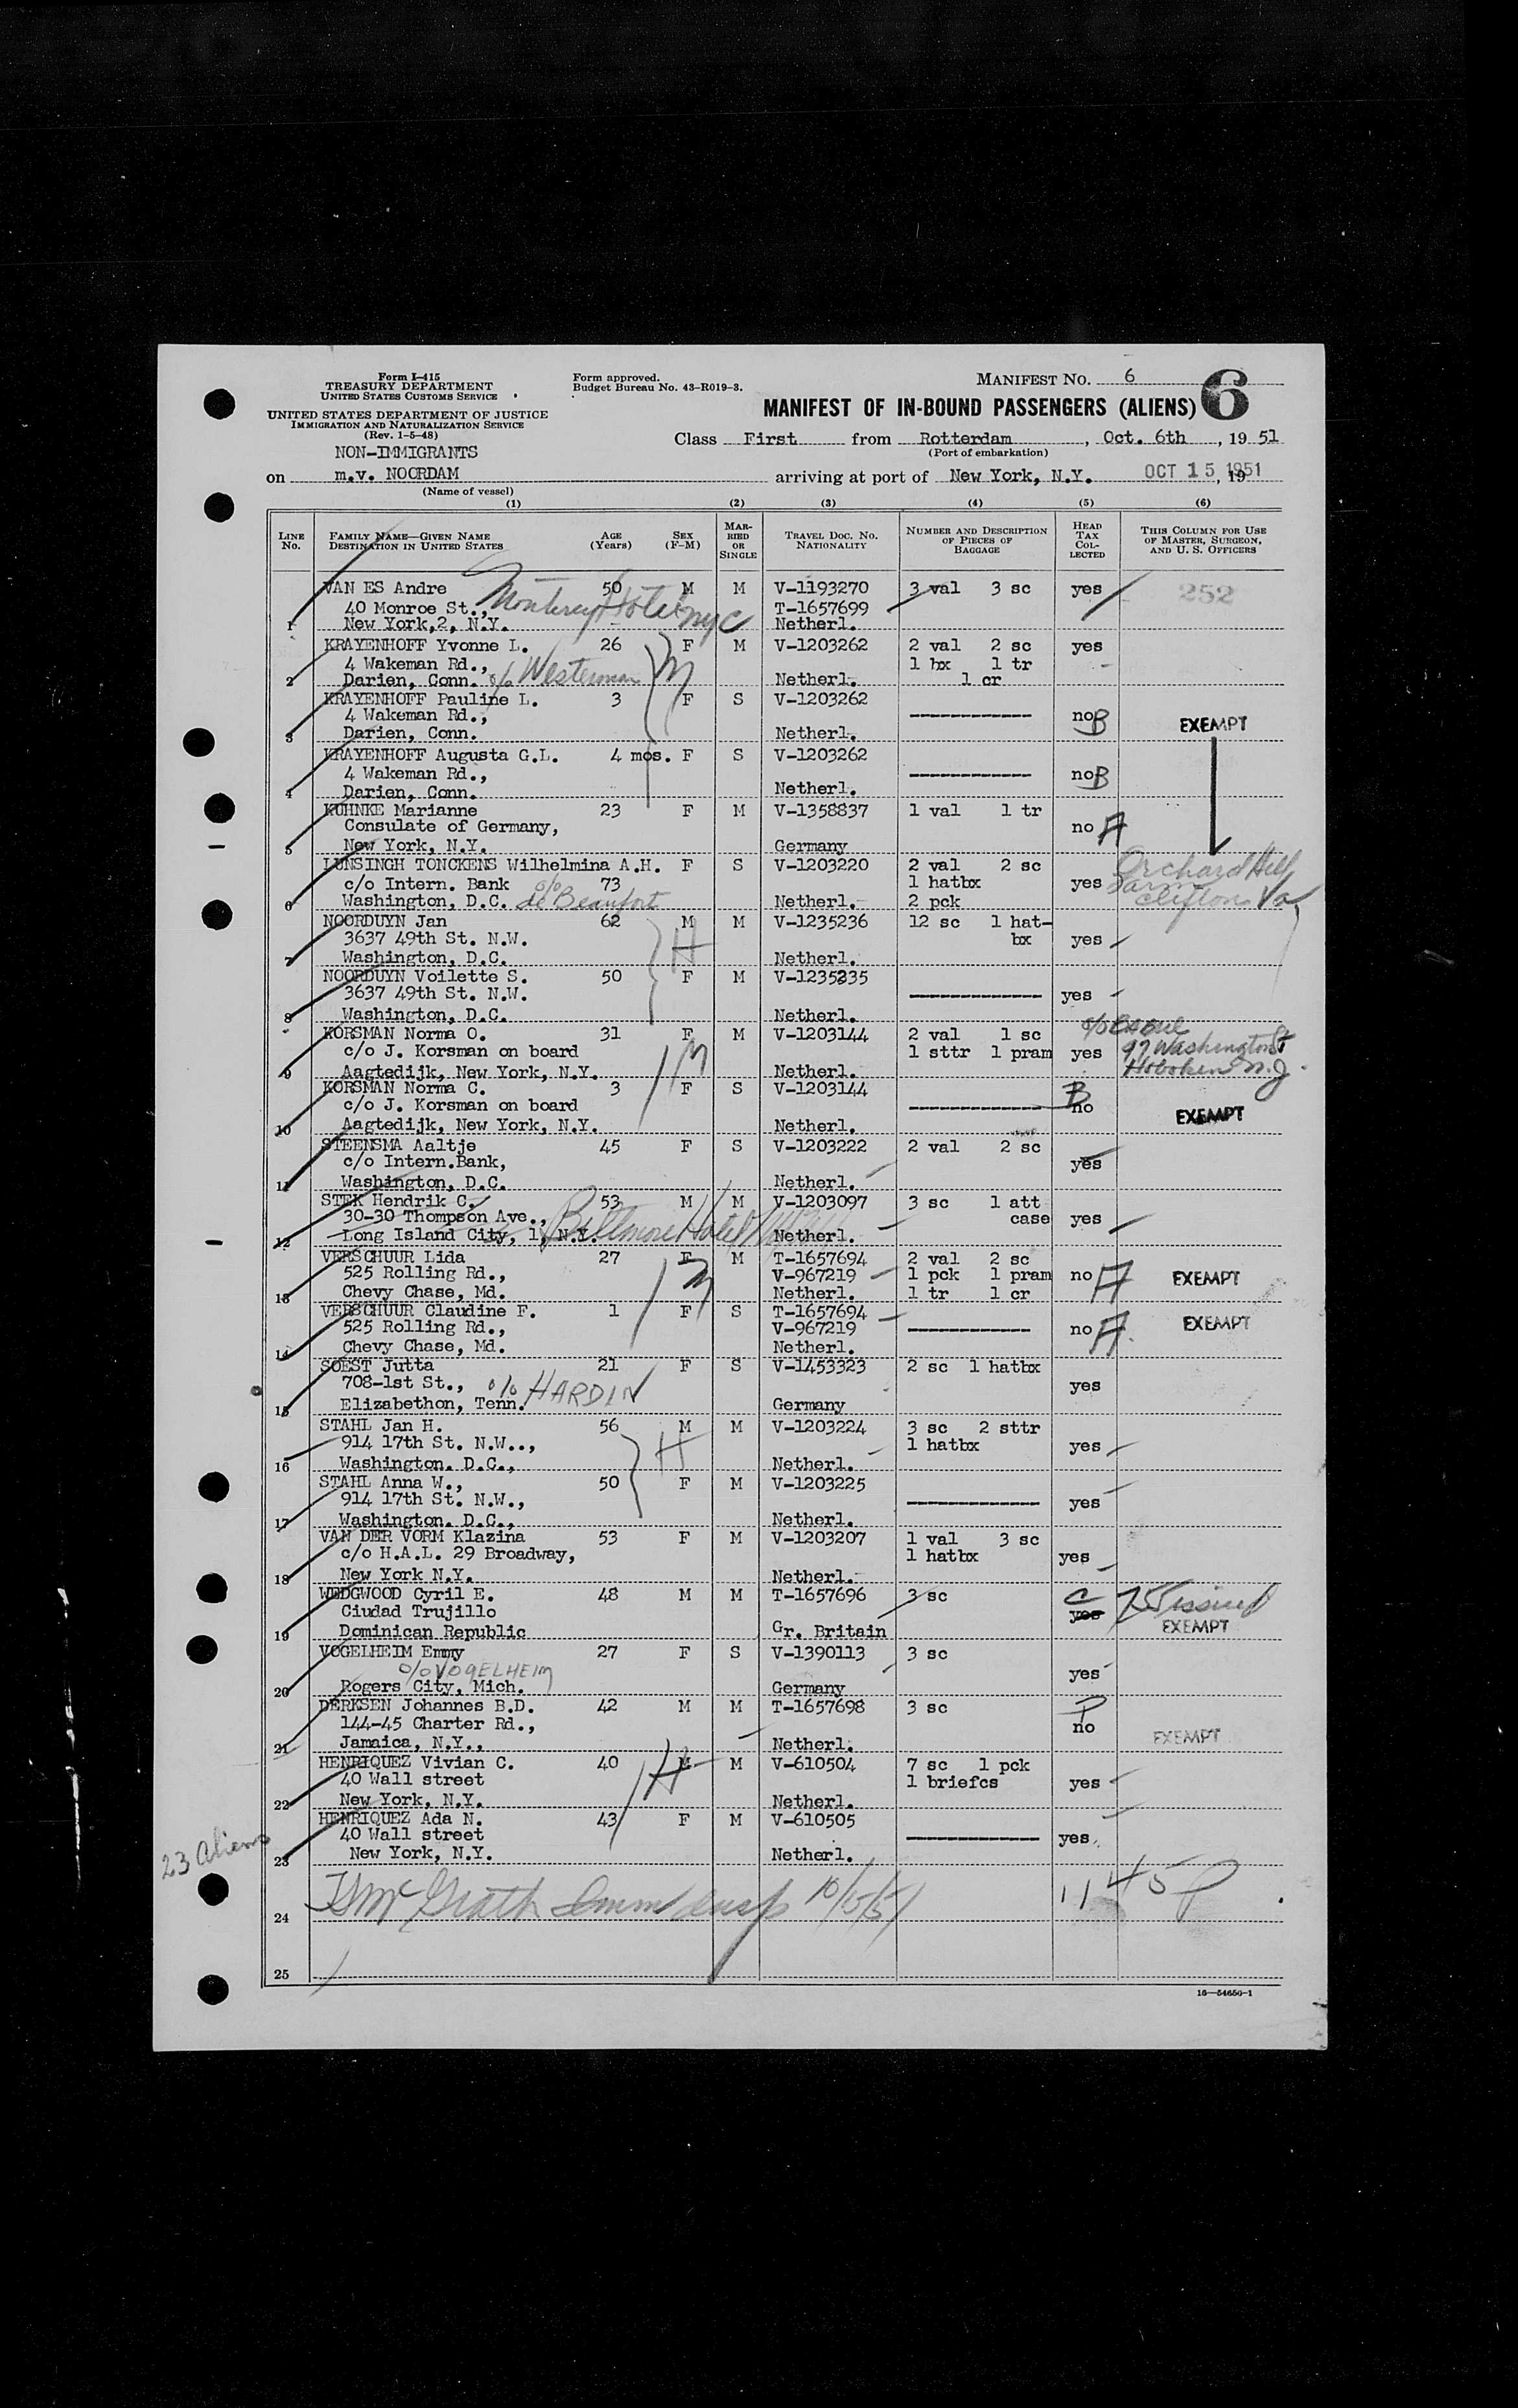 Form I-415
TREASURY DEPARTMENT
UNITED STATES CUSTOMS SERVICE
UNITED STATES DEPARTMENT OF JUSTICE
IMMIGRATION AND NATURALIZATION SERVICE
(Rev. 1-5-48)
NON-IMMIGRANTS
Form approved.
Budget Bureau No. 43-R019-3.
MANIFEST NO. 6
6
MANIFEST OF IN-BOUND PASSENGERS (ALIENS)
Class First from Rotterdam, Oct. 6th, 19 51
(Port of embarkation)
on m.v. NOORDAM arriving at port of New York, N.Y. OCT 15 1951, 19
(Name of vessel)
(1) (2) (3) (4) (5) (6)
LINE No. FAMILY NAME—GIVEN NAME DESTINATION IN UNITED STATES AGE (Years) SEX (F-M) MARRIED OR SINGLE TRAVEL DOC. NO. NATIONALITY NUMBER AND DESCRIPTION OF PIECES OF BAGGAGE HEAD TAX COLLECTED THIS COLUMN FOR USE OF MASTER, SURGEON, AND U. S. OFFICERS
VAN ES Andre 50 M M V-1193270 3 val 3 sc yes 252
40 Monroe St., Monterey Hotel NYC T-1657699
1 New York,2, N.Y. Netherl.
KRAYENHOFF Yvonne L. 26 F M V-1203262 2 val 2 sc yes
4 Wakeman Rd., 1 bx 1 tr
2 Darien, Conn. c/o Westerman M Netherl. 1 cr
KRAYENHOFF Pauline L. 3 F S V-1203262
4 Wakeman Rd., no B EXEMPT
3 Darien, Conn. Netherl.
KRAYENHOFF Augusta G.L. 4 mos. F S V-1203262
4 Wakeman Rd., no B
4 Darien, Conn. Netherl.
KUHNKE Marianne 23 F M V-1358837 1 val 1 tr
Consulate of Germany, no A
5 New York, N.Y. Germany
LUNSINGH TONCKENS Wilhelmina A.H. F S V-1203220 2 val 2 sc Orchard Hill
c/o Intern. Bank c/o 73 1 hatbx yes Farm
6 Washington, D.C. de Beaufort Netherl. 2 pck Clifton Va
NOORDUYN Jan 62 M M V-1235236 12 sc 1 hat-
3637 49th St. N.W. H bx yes
7 Washington, D.C. Netherl.
NOORDUYN Voilette S. 50 F M V-1235235
3637 49th St. N.W. yes
8 Washington, D.C. Netherl.
KORSMAN Norma O. 31 F M V-1203144 2 val 1 sc
c/o J. Korsman on board M 1 sttr 1 pram yes 97 Washington St
9 Aagtedijk, New York, N.Y. Netherl. Hoboken N.J.
KORSMAN Norma C. 3 F S V-1203144 B
c/o J. Korsman on board no EXEMPT
10 Aagtedijk, New York, N.Y. Netherl.
STEENSMA Aaltje 45 F S V-1203222 2 val 2 sc
c/o Intern.Bank, yes
11 Washington, D.C. Netherl.
STEK Hendrik C. 53 M M V-1203097 3 sc 1 att
30-30 Thompson Ave., Biltmore Hotel case yes
12 Long Island City, 1, N.Y. Netherl.
VERSCHUUR Lida 27 F M T-1657694 2 val 2 sc
525 Rolling Rd., M V-967219 1 pck 1 pram no A EXEMPT
13 Chevy Chase, Md. Netherl. 1 tr 1 cr
VERSCHUUR Claudine F. 1 F S T-1657694
525 Rolling Rd., V-967219 no A EXEMPT
14 Chevy Chase, Md. Netherl.
SOEST Jutta 21 F S V-1453323 2 sc 1 hatbx
708-1st St., c/o HARDIN yes
15 Elizabethon, Tenn. Germany
STAHL Jan H. 56 M M V-1203224 3 sc 2 sttr
914 17th St. N.W.., H 1 hatbx yes
16 Washington. D.C., Netherl.
STAHL Anna W., 50 F M V-1203225
914 17th St. N.W., yes
17 Washington. D.C., Netherl.
VAN DER VORM Klazina 53 F M V-1203207 1 val 3 sc
c/o H.A.L. 29 Broadway, 1 hatbx yes
18 New York N.Y. Netherl.
WEDGWOOD Cyril E. 48 M M T-1657696 3 sc C issued
Ciudad Trujillo yes EXEMPT
19 Dominican Republic Gr. Britain
VOGELHEIM Emmy 27 F S V-1390113 3 sc
c/o VOGELHEIM yes
20 Rogers City, Mich. Germany
DERKSEN Johannes B.D. 42 M M T-1657698 3 sc P
144-45 Charter Rd., no EXEMPT
21 Jamaica, N.Y., Netherl.
HENRIQUEZ Vivian C. 40 M M V-610504 7 sc 1 pck
40 Wall street H 1 briefcs yes
22 New York, N.Y. Netherl.
HENRIQUEZ Ada N. 43 F M V-610505
40 Wall street yes
23 New York, N.Y. Netherl.
23 Aliens
McGrath Imm Insp 10/15/51 11 45 P
24
25
16—54650-1